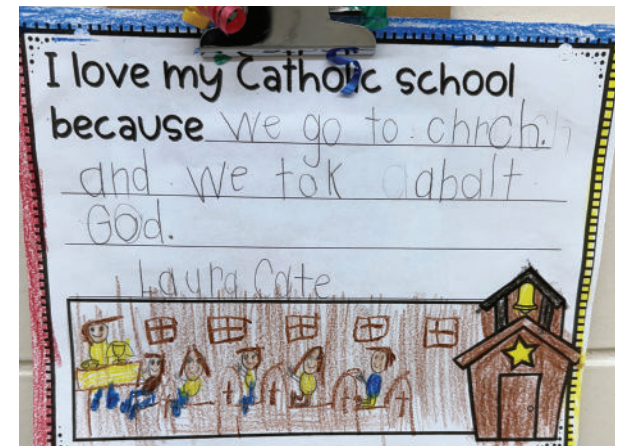 I love my Catholic school
because we go to. chrch.
and we tok abalt
GOd.
Laura Cate